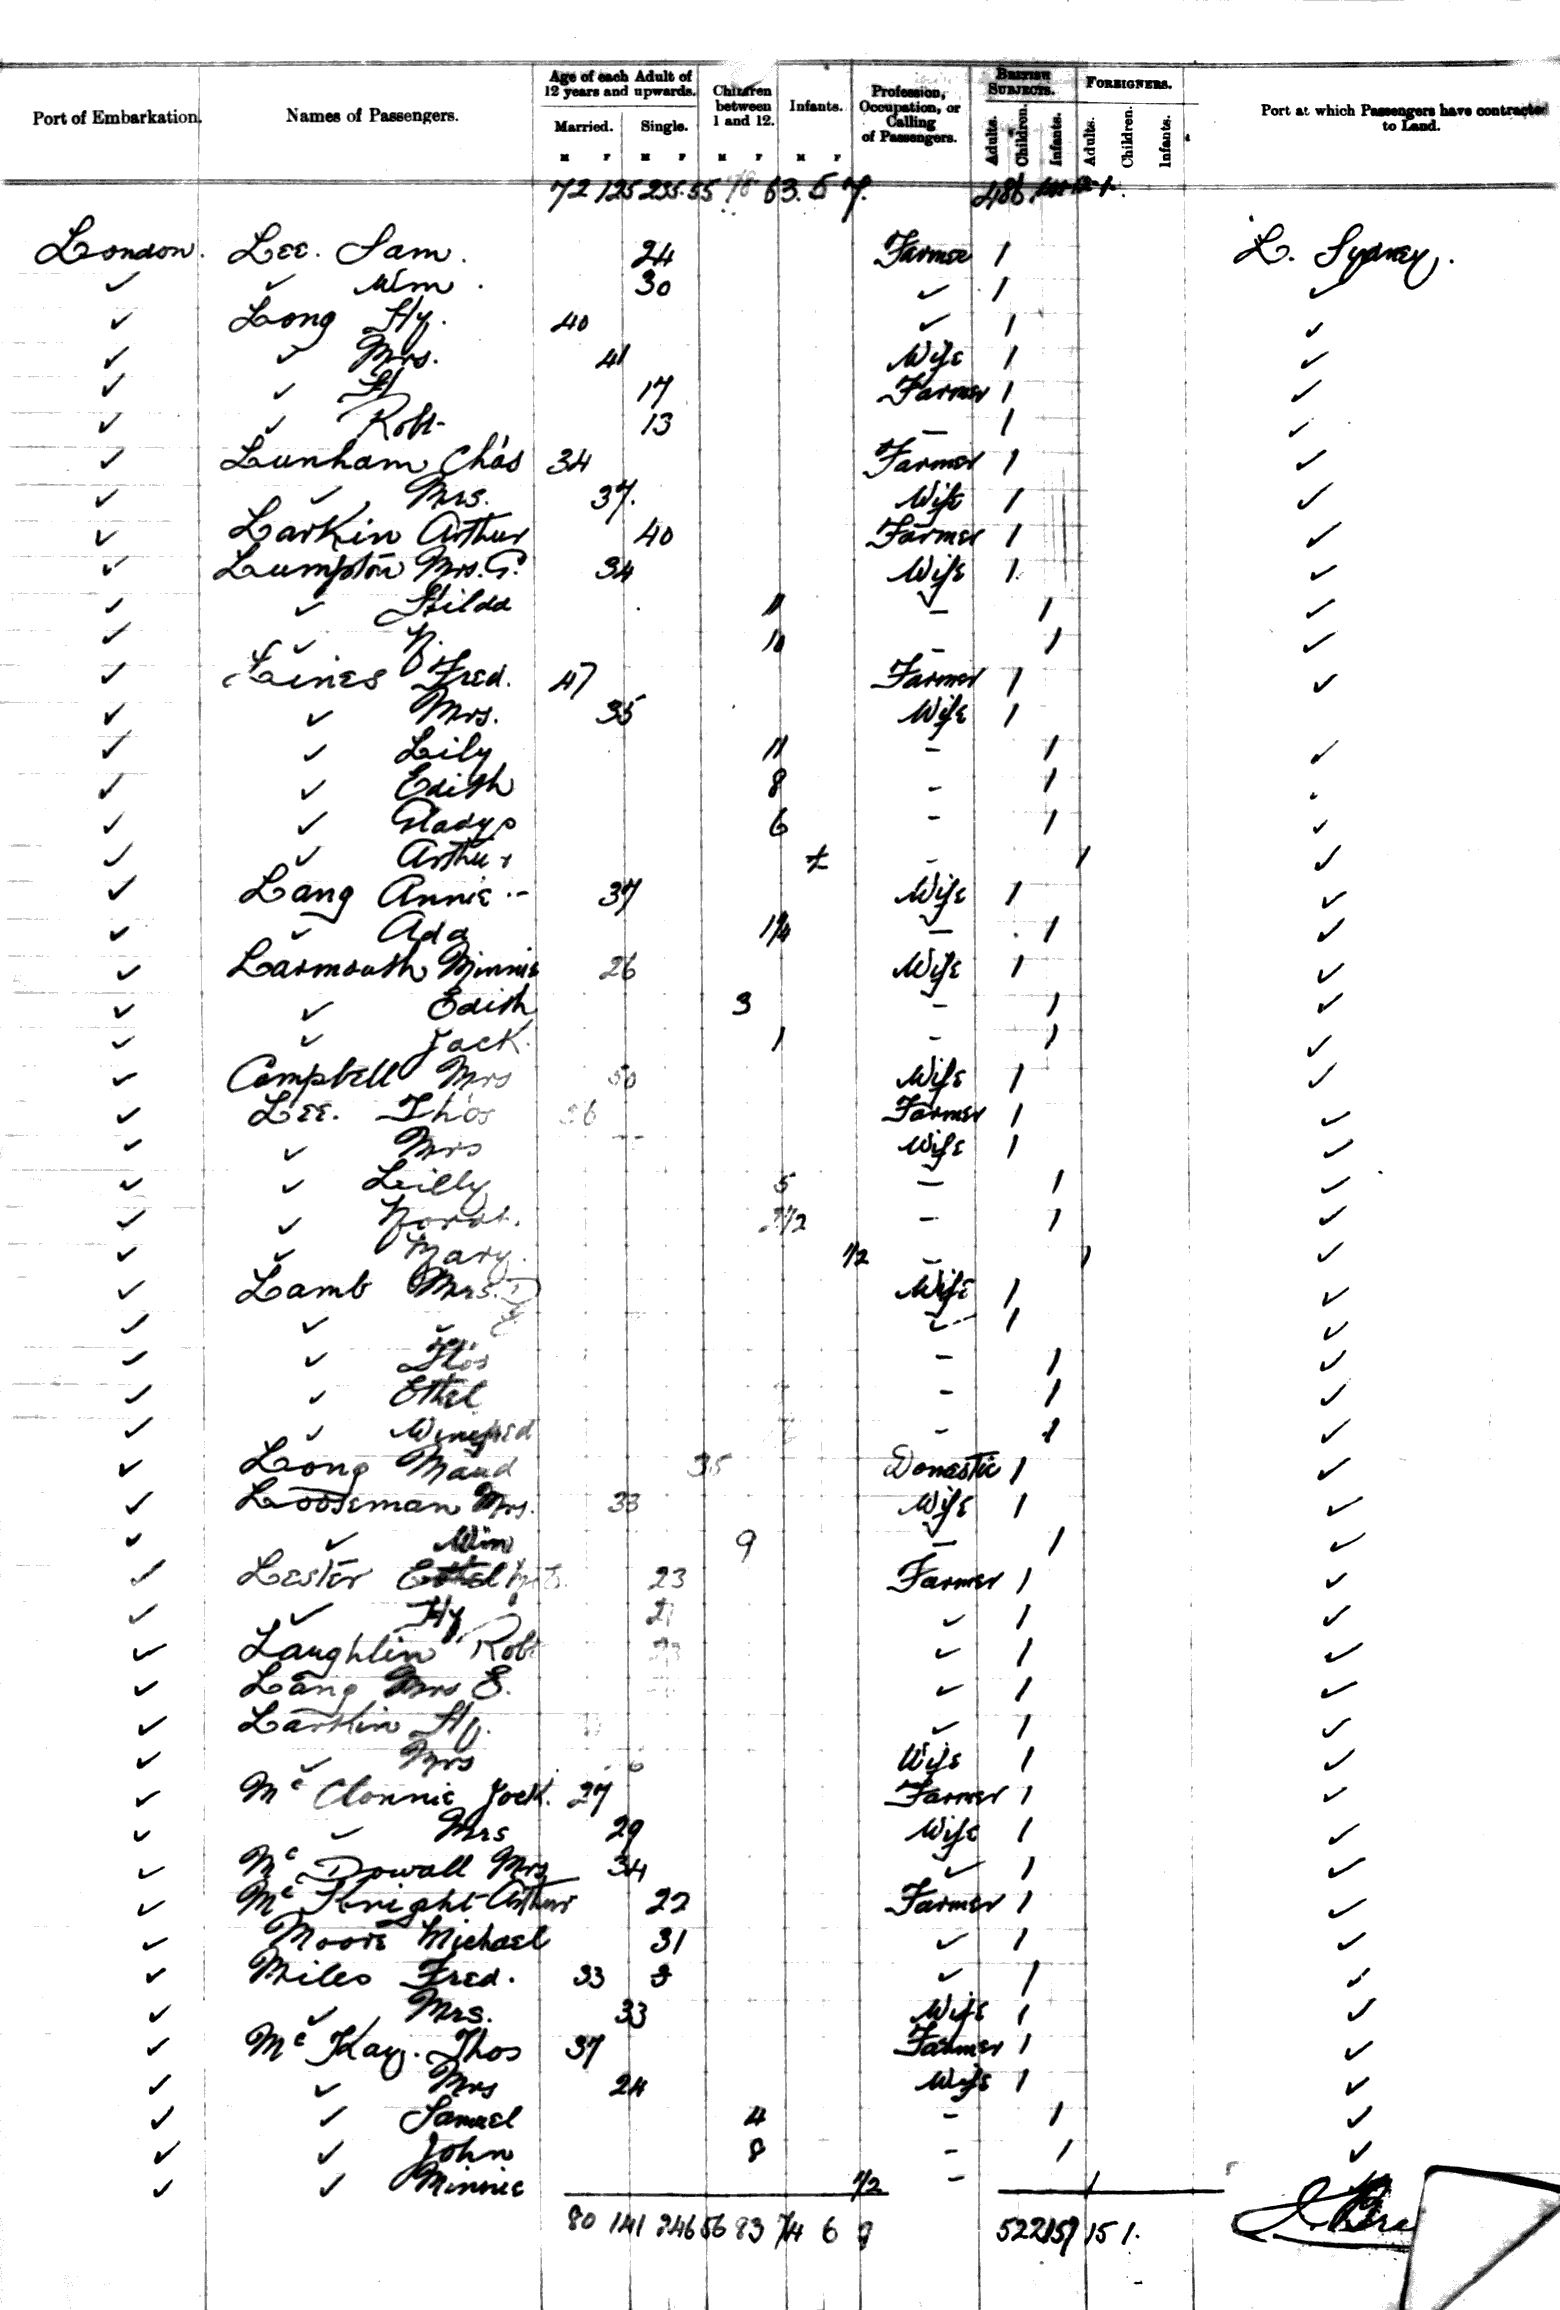 Port of Embarkation. Names of Passengers. Age of each Adult of 12 years and upwards. Married. Single. Children between 1 and 12. Infants. Profession, Occupation, or Calling of Passengers. BRITISH SUBJECTS. Adults. Children. Infants. FOREIGNERS. Adults. Children. Infants. Port at which Passengers have contracted to Land.
M F M F M F M F
72 125 235 55 78 63 5 7 486
London. Lee. Sam. 24 Farmer 1 L. Sydney.
✓ ✓ Wm. 30 ✓ 1 ✓
✓ Long Hy. 40 ✓ 1 ✓
✓ ✓ Mrs. 41 Wife 1 ✓
✓ ✓ H 17 Farmer 1 ✓
✓ ✓ Robt 13 — 1 ✓
✓ Lunham Chas 34 Farmer 1 ✓
✓ ✓ Mrs. 37. Wife 1 ✓
✓ Larkin Arthur 40 Farmer 1 ✓
✓ Lumpton Mrs. G. 34 Wife 1 ✓
✓ ✓ Hilda 11 — 1 ✓
✓ ✓ 10 — 1 ✓
✓ Lines Fred. 47 Farmer 1 ✓
✓ ✓ Mrs. 35 Wife 1
✓ ✓ Lily 11 - 1 ✓
✓ ✓ Edith 8 - 1
✓ ✓ Gladys 6 - 1 ✓
✓ ✓ Arthur - 1 ✓
✓ Lang Annie 37 Wife 1 ✓
✓ ✓ Ada 1¼ — 1 ✓
✓ Larmouth Minnie 26 Wife 1 ✓
✓ ✓ Edith 3 - 1 ✓
✓ ✓ Jack. 1 - 1 ✓
✓ Campbell Mrs 50 Wife 1 ✓
✓ Lee. Thos 36 Farmer 1 ✓
✓ ✓ Mrs Wife 1 ✓
✓ ✓ Lilly 5 — 1 ✓
✓ ✓ Norah. 2½ - 1 ✓
✓ ✓ Mary. ½ - 1 ✓
✓ Lamb Mrs. D Wife 1 ✓
✓ ✓ ✓ ✓ 1 ✓
✓ ✓ Thos - 1 ✓
✓ ✓ Ethel - 1 ✓
✓ ✓ Winefred - 1 ✓
✓ Long Maud 35 Domestic 1 ✓
✓ Looseman Mrs. 33 Wife 1 ✓
✓ ✓ Wim 9 — 1 ✓
✓ Lester Ethel 23 Farmer 1 ✓
✓ ✓ Hy 21 ✓ 1 ✓
✓ Laughlin Robt 23 ✓ 1 ✓
✓ Lang Mrs E. ✓ 1 ✓
✓ Larkin Hy. ✓ 1 ✓
✓ ✓ Mrs Wife 1 ✓
✓ Mc Clonnie Jack. 27 Farmer 1 ✓
✓ ✓ Mrs 29 Wife 1 ✓
✓ Mc Dowall Mrs 34 ✓ 1 ✓
✓ Mc Knight Arthur 22 Farmer 1 ✓
✓ Moore Michael 31 ✓ 1 ✓
✓ Miles Fred. 33 ✓ 1 ✓
✓ ✓ Mrs. 33 Wife 1 ✓
✓ Mc Kay. Thos 37 Farmer 1 ✓
✓ ✓ Mrs 24 Wife 1 ✓
✓ ✓ Samuel 4 - 1 ✓
✓ ✓ John 8 - 1 ✓
✓ ✓ Minnie ½ - 1
80 141 246 56 83 74 6 9 522 157 15 1.